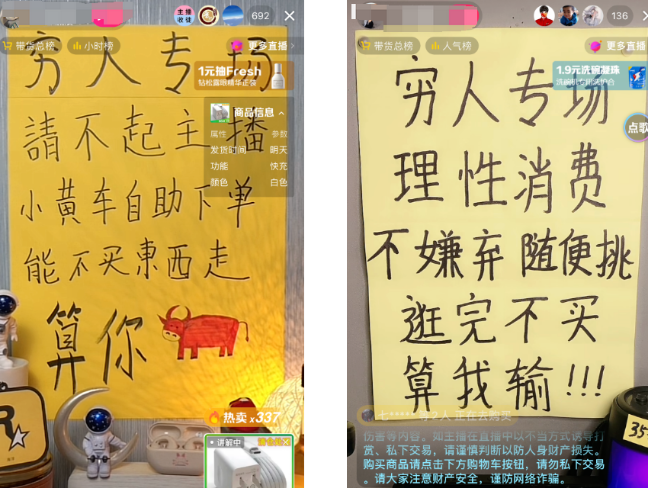 主播
收徒
692
带货总榜
小时榜
更多直播
穷人专场
1元抽Fresh
請不起主播
商品信息
属性
参数
发货时间
明天
功能
快充
颜色
白色
小黄车自助下单
能不买東西走
算你
热卖 x337
讲解中
136
带货总榜
人气榜
更多直播
穷人专场
1.9元洗碗凝珠
点歌
理性消费
不嫌弃 随便挑
逛完不买
算我输!!!
七***** 等2人 正在去购买
伤害等内容。如主播在直播中以不当方式诱导打
赏、私下交易，请谨慎判断以防人身财产损失。
购买商品请点击下方购物车按钮，请勿私下交易
。请大家注意财产安全，谨防网络诈骗。
35